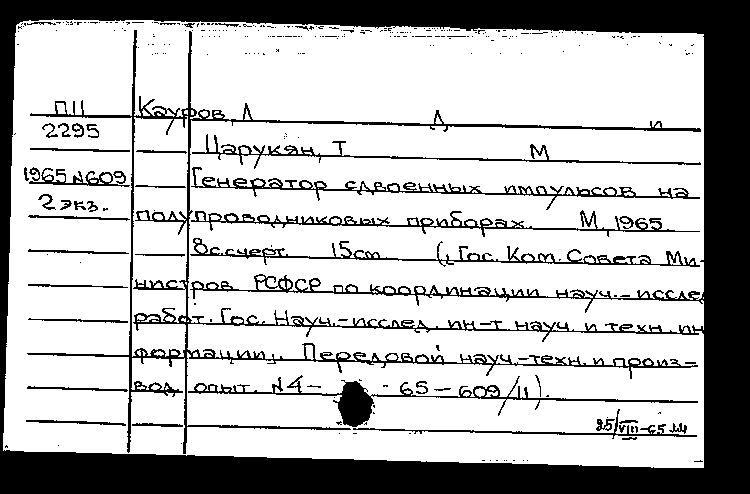 П11 Кауров, Л Д и
2295 Царукян, Т М
1965 N609 Генератор сдвоенных импульсов на
2 экз. полупроводниковых приборах. М, 1965
8с.счерт. 15cm (, Гос. Ком. Совета Ми-
нистров РСФСР по координации науч.-исслед
работ. Гос. Науч.-исслед. ин-т науч. и техн. ин
формации,. Передовой науч.-техн. и произ-
вод опыт. N4- - 65-609/11).
25/VIII-65